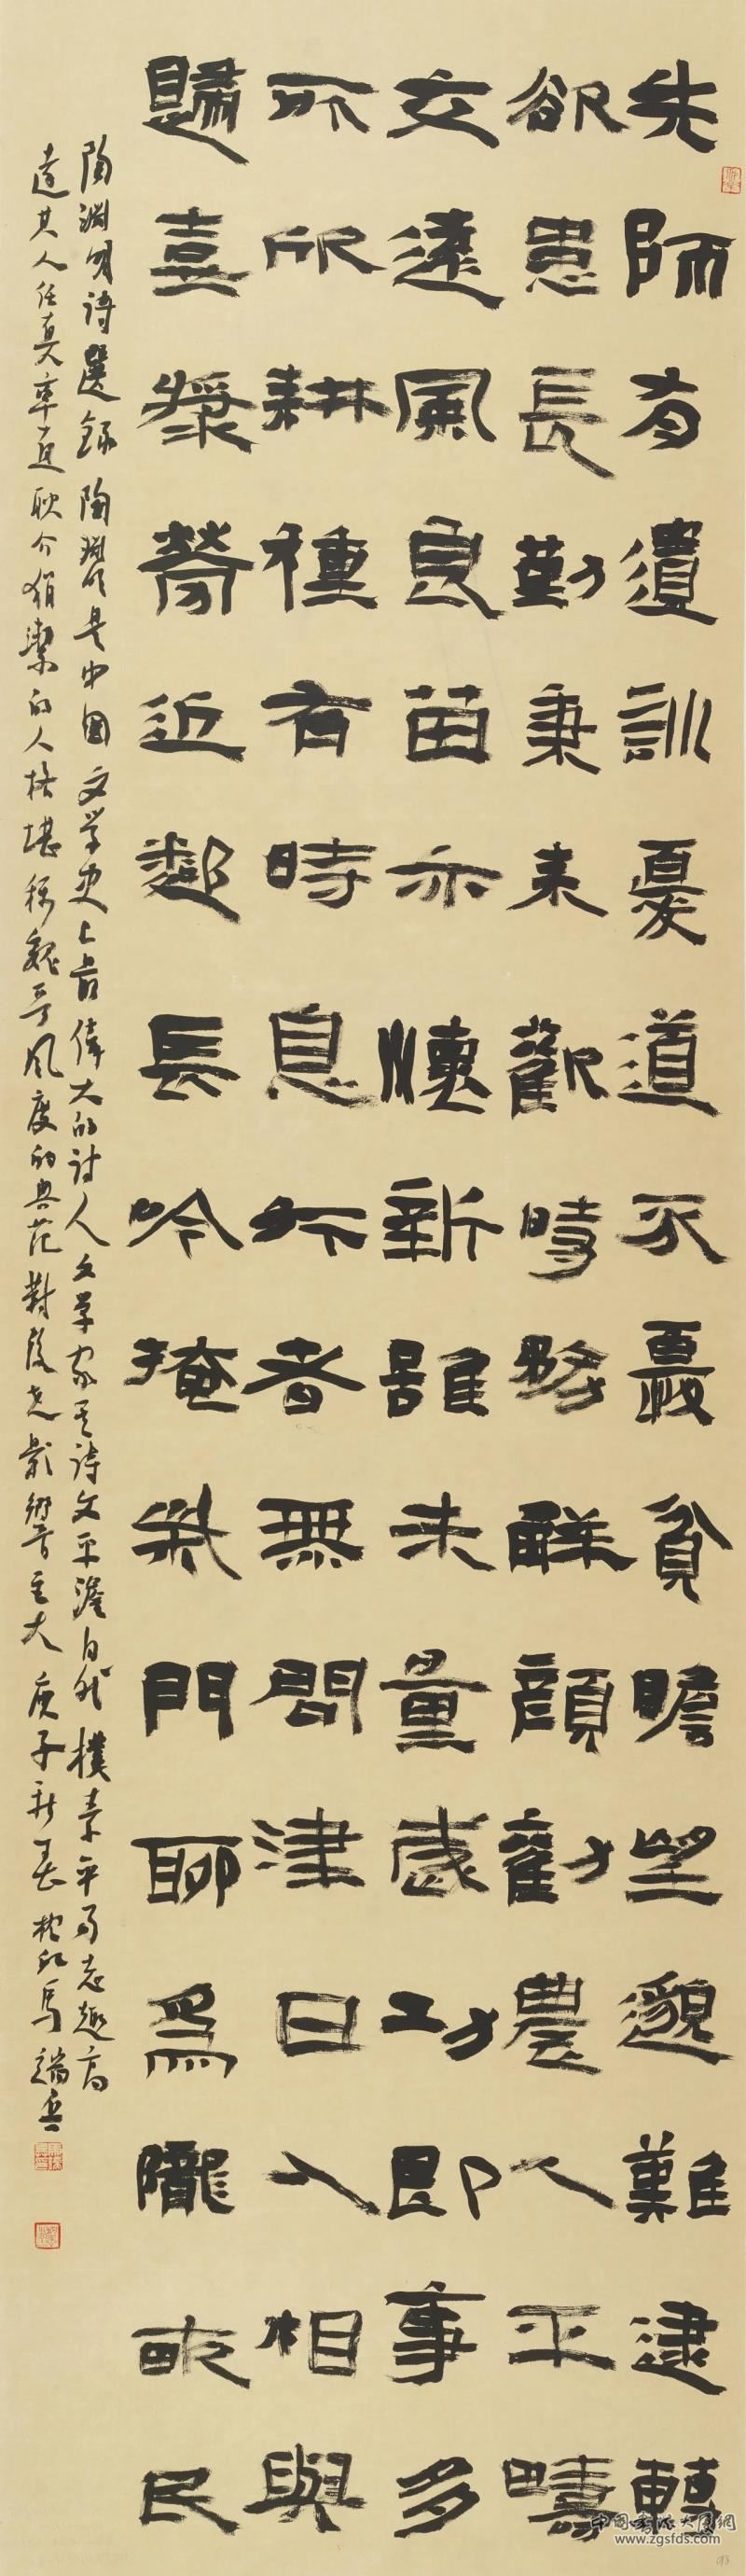 先師有遺訓憂道不憂貧瞻望邈難逮轉
欲患長勤秉耒歡時務解顏勸農人平疇
交遠風良苗亦懷新雖未量歲功即事多
所欣耕種有時息行者無問津日入相與
歸壺漿勞近鄰長吟掩柴門聊為隴畝民
陶淵明詩選錄陶淵明是中國文學史上最偉大的詩人文學家其詩文平淡自然樸素平易志趣高
遠其人任真率直耿介狷潔的人格堪稱魏晉風度的典范對後世影響至大庚子新春於馬端兵
中国书法大厦网
www.zgsfds.com